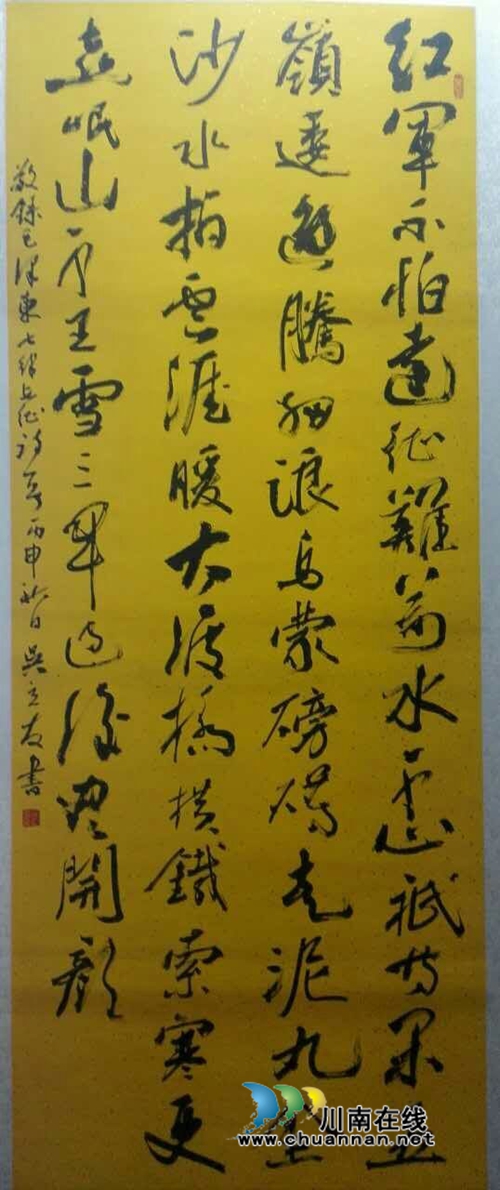 紅軍不怕遠征難萬水千山祇等闲五
嶺逶迤騰細浪烏蒙磅礴走泥丸金
沙水拍雲涯暖大渡橋横鐵索寒更
喜岷山千里雪三軍过後盡開颜
敬錄毛澤東七律長征詩一首丙申秋日吳立友書
川南在线
www.chuannan.net